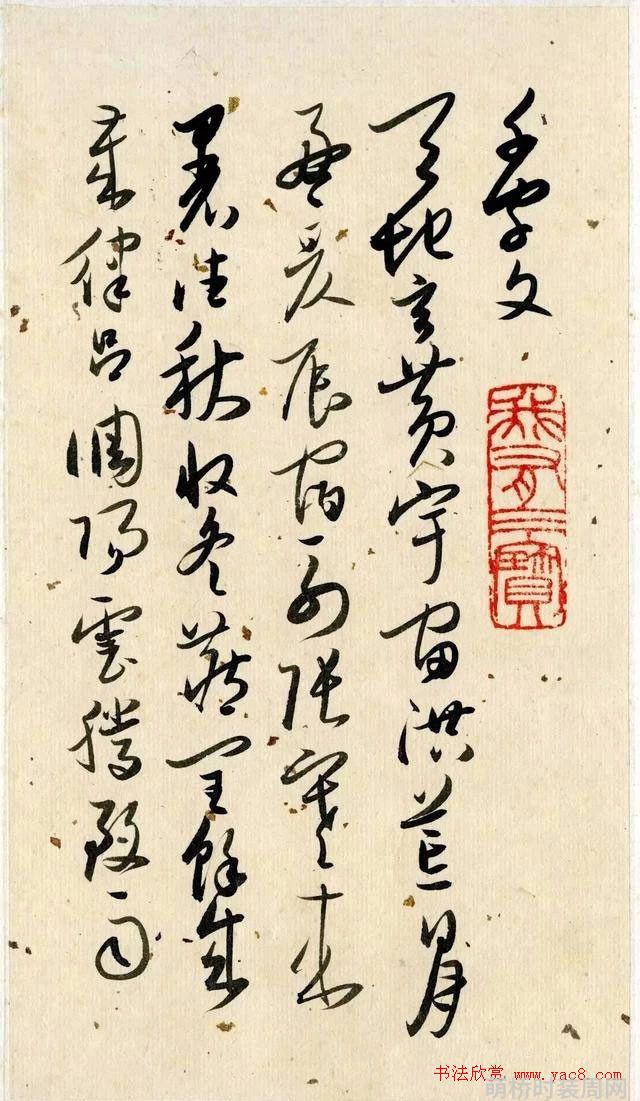 千字文
我有三寶
天地玄黃宇宙洪荒日月
盈昃辰宿列張寒来
暑往秋收冬藏閏餘成
歲律呂調陽雲騰致雨
书法欣赏 www.yac8.com
萌桥时装周网